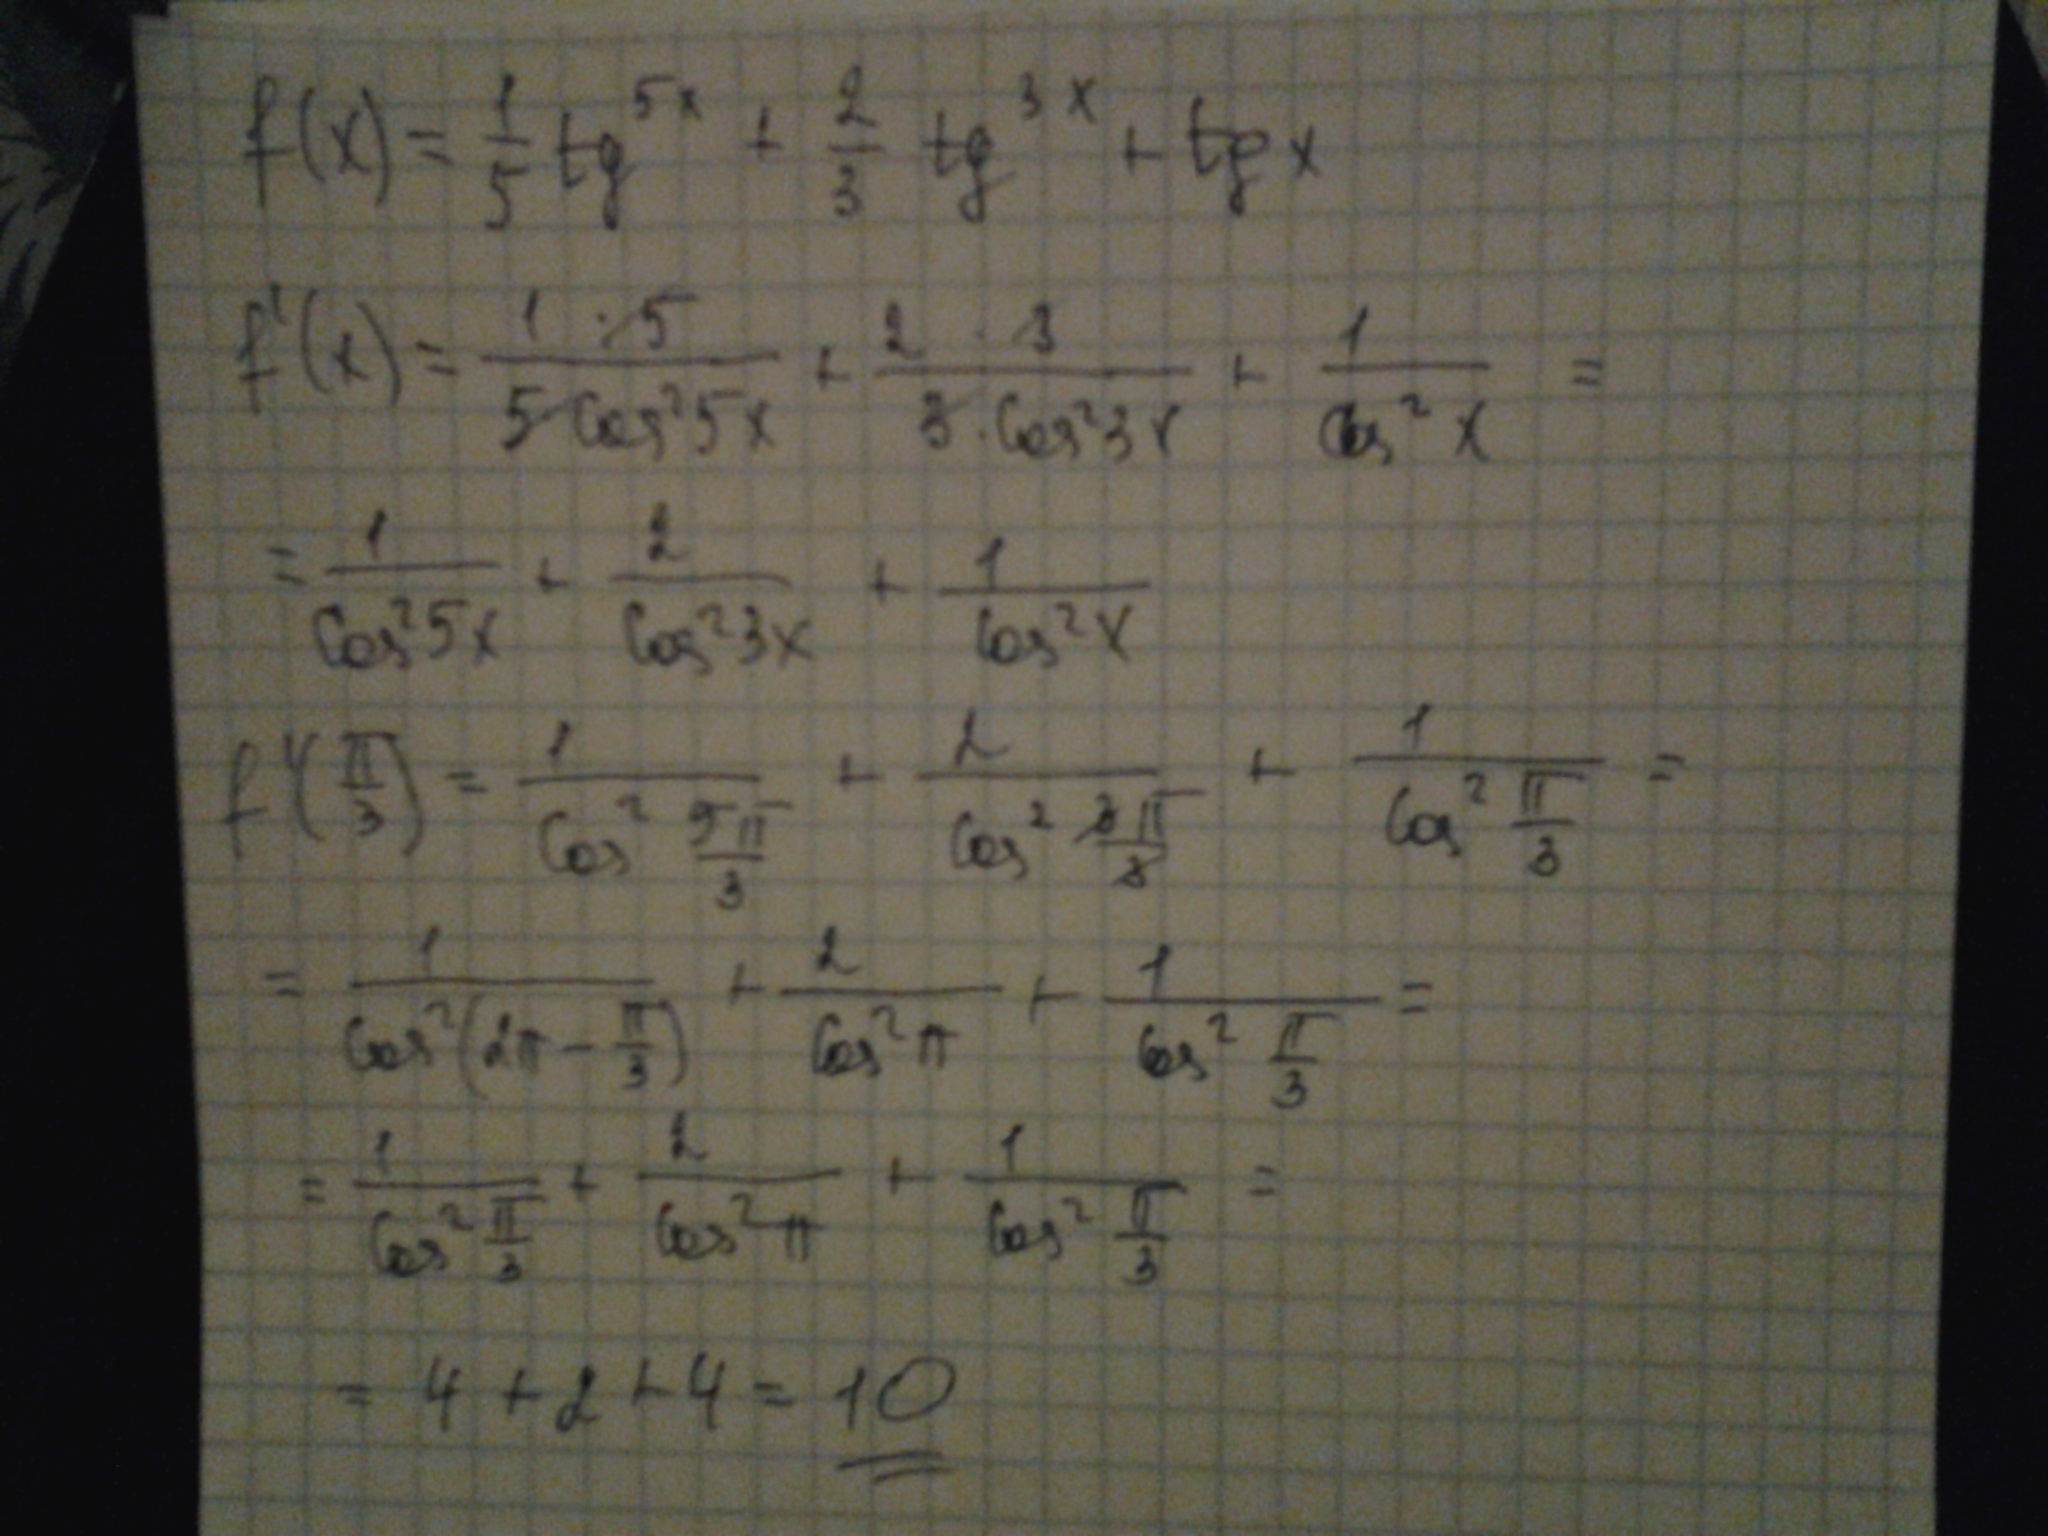 f(x) = 1/5 tg^5x + 2/3 tg^3x + tg x
f'(x) = 1·5/5·Cos²5x + 2·3/3·Cos²3x + 1/Cos²x =
= 1/Cos²5x + 2/Cos²3x + 1/Cos²x
f'(π/3) = 1/Cos² 5π/3 + 2/Cos² 3π/3 + 1/Cos² π/3 =
= 1/Cos²(2π - π/3) + 2/Cos²π + 1/Cos² π/3 =
= 1/Cos² π/3 + 2/Cos²π + 1/Cos² π/3 =
= 4 + 2 + 4 = 10